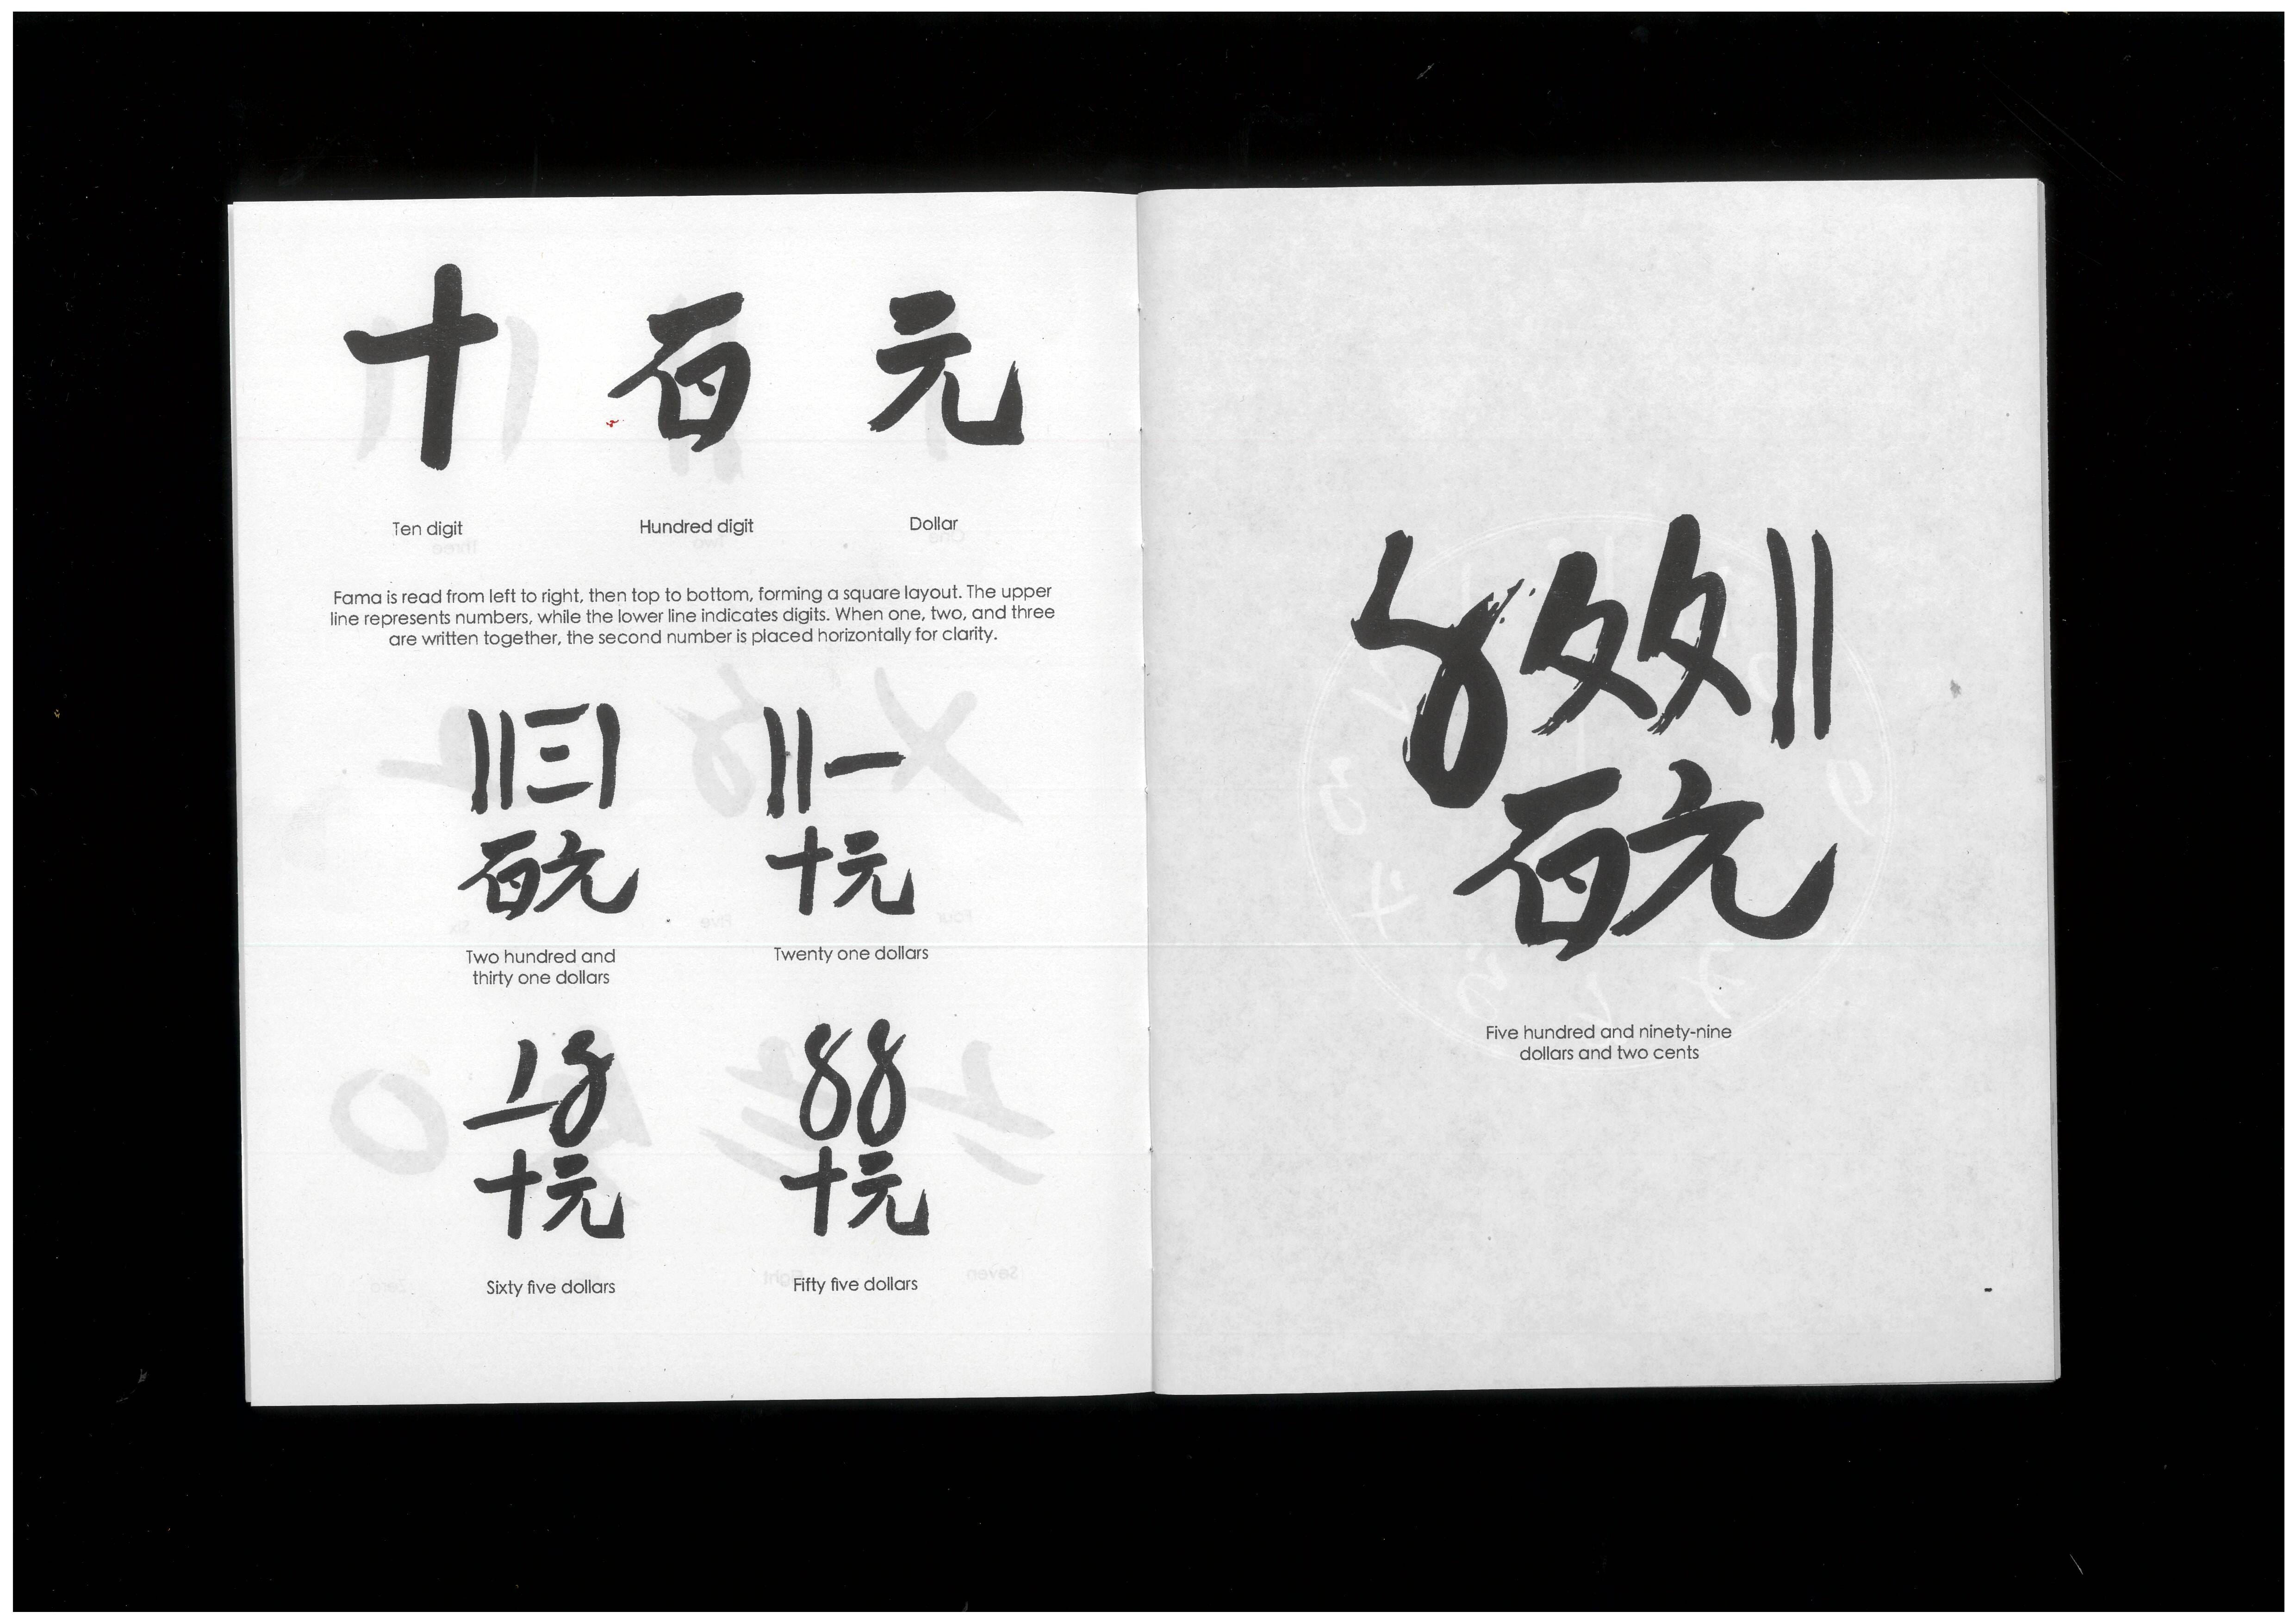 十 百 元
Ten digit Hundred digit Dollar
Fama is read from left to right, then top to bottom, forming a square layout. The upper
line represents numbers, while the lower line indicates digits. When one, two, and three
are written together, the second number is placed horizontally for clarity.
〢三〡 〢一
百元 十元
Two hundred and
thirty one dollars
Twenty one dollars
〦〥 〥〥
十元 十元
Sixty five dollars Fifty five dollars
〥〩〩〢
百元
Five hundred and ninety-nine
dollars and two cents